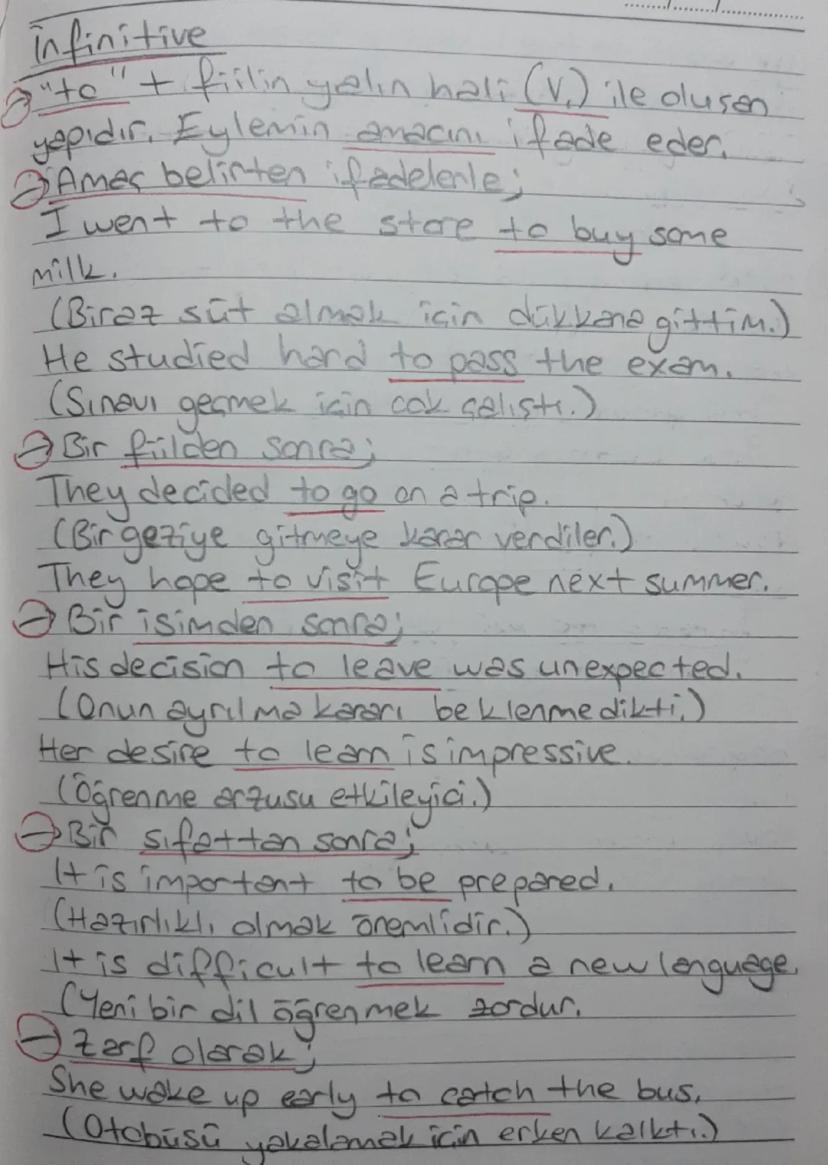 infinitive
→ "to" + fiilin yalın hali (V₁) ile oluşan
yapıdır. Eylemin amacını ifade eder.
→ Amaç belirten ifadelerle;
I went to the store to buy some
milk.
(Biraz süt almak için dükkana gittim.)
He studied hard to pass the exam.
(Sınavı geçmek için çok çalıştı.)
→ Bir fiilden sonra;
They decided to go on a trip.
(Bir geziye gitmeye karar verdiler.)
They hope to visit Europe next summer.
→ Bir isimden sonra;
His decision to leave was unexpected.
(Onun ayrılma kararı beklenmedikti.)
Her desire to learn is impressive.
(Öğrenme arzusu etkileyici.)
→ Bir sıfattan sonra;
It is important to be prepared.
(Hazırlıklı olmak önemlidir.)
It is difficult to learn a new language.
(Yeni bir dil öğrenmek zordur.
→ Zarf olarak;
She woke up early to catch the bus.
(Otobüsü yakalamak için erken kalktı.)